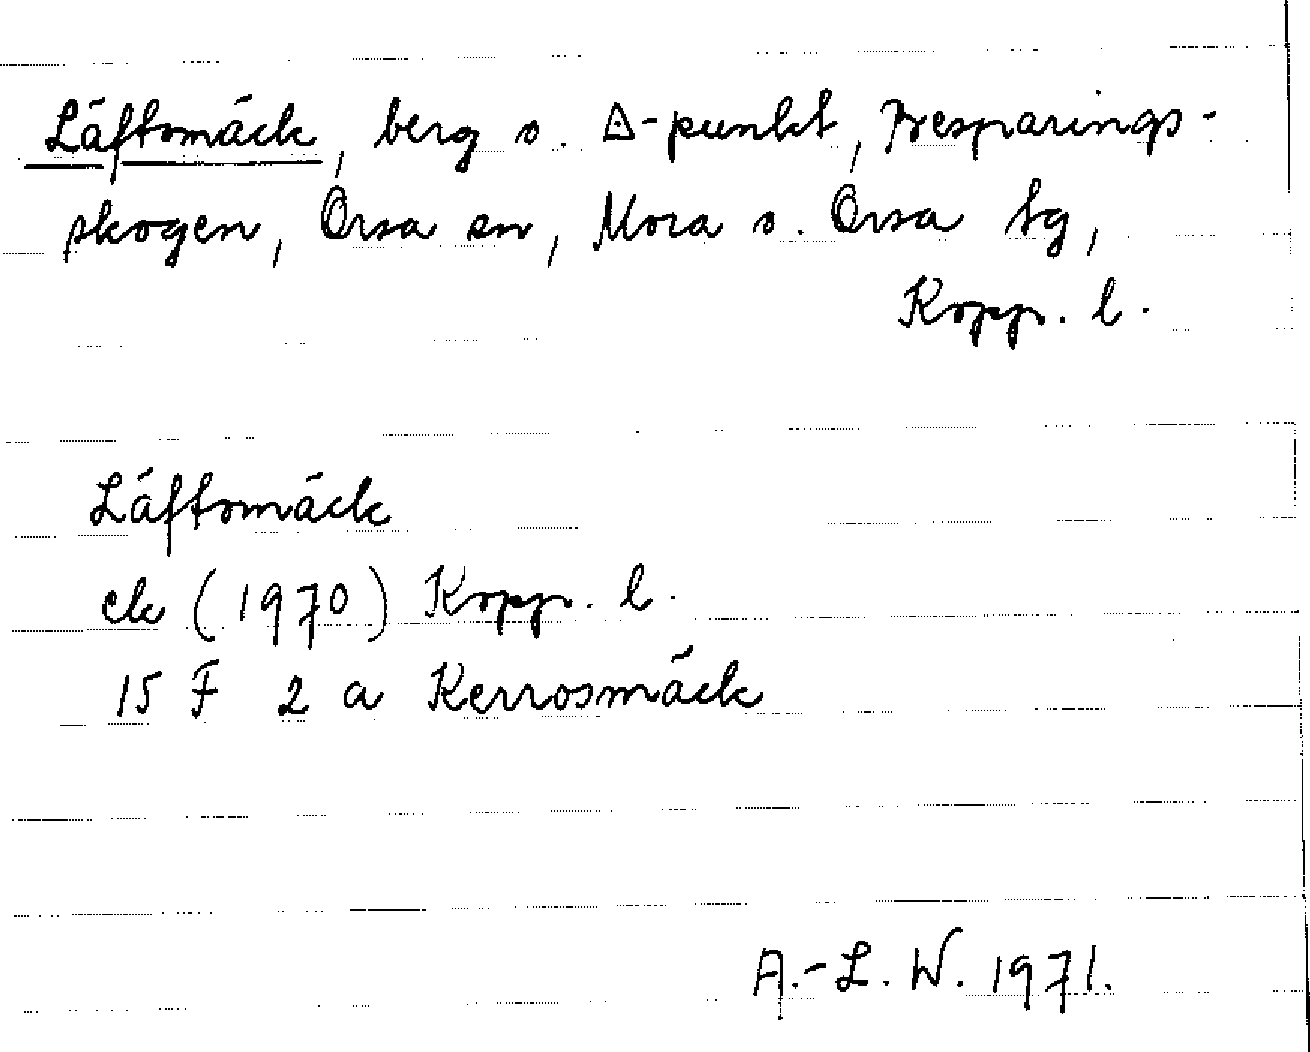 Läftomäck, berg o. Δ-punkt, Besparings-
skogen, Orsa sn, Mora o. Orsa tg,
Kopp. l.
Läftomäck
ek (1970) Kopp. l.
15 F 2 a Kerrosmäck
A.-L. W. 1971.